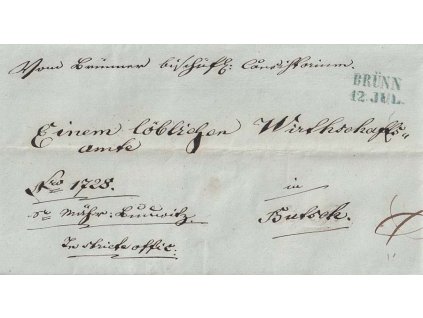 Vom Brünner bischöfl: Consistorium.
BRÜNN
12. JUL.
Einem löblichen Wirthschafts„
amte
Nro 1728.
in
Mähr: Budwitz.
Butsch.
In stricte offic: